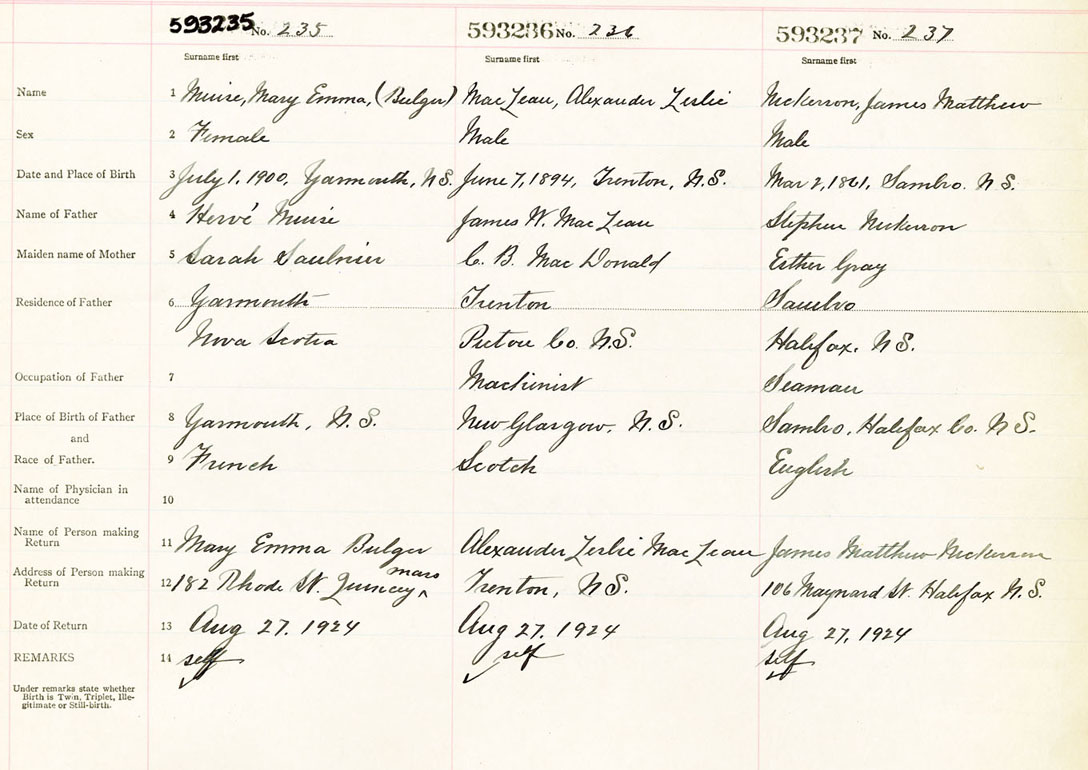 593235 No. 235 593236 No. 236 593237 No. 237
Surname first Surname first Surname first
Name 1 Muise, Mary Emma, (Bulger) MacLean, Alexander Leslie Nickerson, James Matthew
Sex 2 Female Male Male
Date and Place of Birth 3 July 1, 1900, Yarmouth, N.S. June 7, 1894, Trenton, N.S. Mar 2, 1861, Sambro. N.S.
Name of Father 4 Hervé Muise James W. MacLean Stephen Nickerson
Maiden name of Mother 5 Sarah Saulnier C. B. MacDonald Esther Gray
Residence of Father 6 Yarmouth Trenton Sambro
Nova Scotia Pictou Co. N.S. Halifax, N.S.
Occupation of Father 7 Machinist Seaman
Place of Birth of Father 8 Yarmouth, N.S. New Glasgow, N.S. Sambro, Halifax Co. N.S.
and
Race of Father. 9 French Scotch English
Name of Physician in
attendance 10
Name of Person making
Return 11 Mary Emma Bulger Alexander Leslie MacLean James Matthew Nickerson
Address of Person making mass
Return 12 182 Rhode St. Quincey ^ Trenton, N.S. 106 Maynard St. Halifax N.S.
Date of Return 13 Aug 27, 1924 Aug 27, 1924 Aug 27, 1924
REMARKS 14 self self self
Under remarks state whether
Birth is Twin, Triplet, Ille-
gitimate or Still-birth.